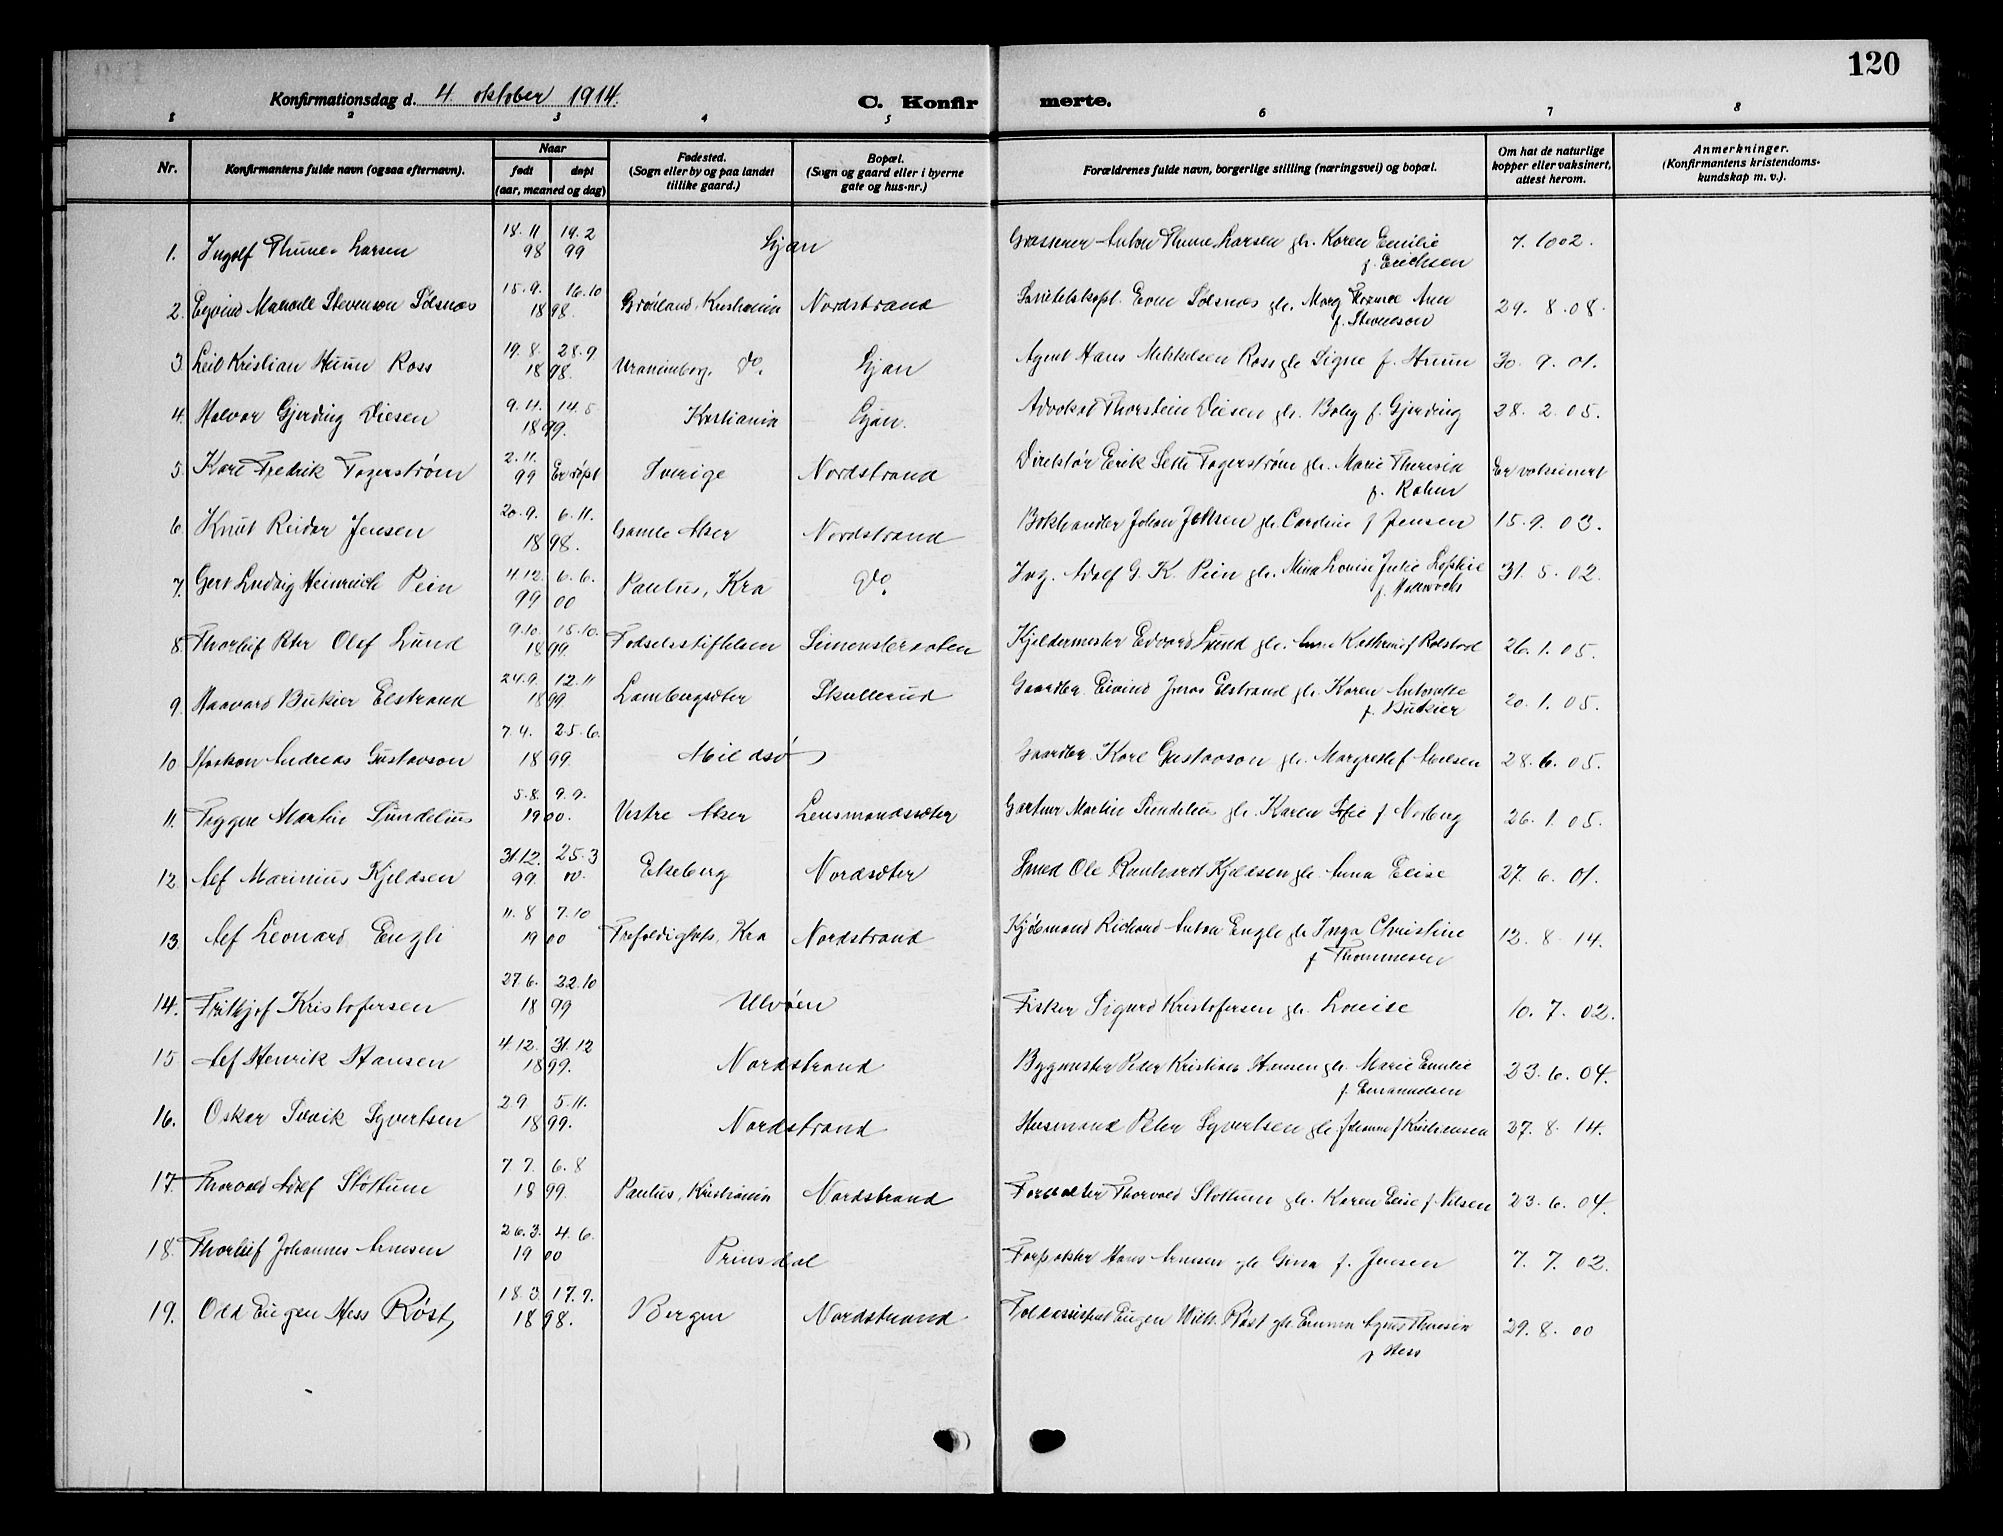 120
Konfirmationsdag d. 4. oktober 1914.
C. Konfir merte.
1 2 3 4 5 6 7 8
Nr. Konfirmantens fulde navn (ogsaa efternavn). Naar født døpt (aar, maaned og dag) Fødested. (Sogn eller by og paa landet tillike gaard.) Bopæl. (Sogn og gaard eller i byerne gate og hus-nr.) Forældrenes fulde navn, borgerlige stilling (næringsvei) og bopæl. Om hat de naturlige kopper eller vaksinert, attest herom. Anmerkninger. (Konfirmantens kristendoms-kundskap m. v.).
1. Ingolf Thune-Larsen 18.11 98 19.2 99 Ljan Anton Thune Larsen gh. Karen Emilie f. Erichsen 7. 10 02.
2. Stevenson Solsnæs 15.9. 16.10 1898. Grønland, Kristiania Nordstrand Even Solsnæs gh. Marg Ann f. Stevenson 29. 8. 08.
3. Leif Kristian Huun Ross 19.8. 28.9 1898. Uranienborg, do. Ljan Agent Hans Mikkelsen Ross gh. Signe f. Huun 30. 9. 01.
4. Halvor Gjerding Diesen 9.11. 14.5 1899. Kristiania Ljan. Advokat Thorstein Diesen gh. Boley f. Gjerding 28. 2. 05.
5. Karl Fredrik Fagerstrøm 2.11. 99 Er døpt Sverige Nordstrand Direktør Erik Fagerstrøm gh. Marie Theresia f. Rahm Er vaksinert
6. Knut Reidar Jensen 20.9. 6.11. 1898. Gamle Aker Nordstrand Bokhandler Johan Jensen gh. Caroline f Jensen 15. 9. 03.
7. Gert Ludvig Heinrich Pein 4.12. 99 6.6. 00 Paulus, Kra do. Ing. Adolf G. K. Pein gh. Mina Louise Julie f. 31. 5. 02.
8. Thorleif Peter Olaf Lund 9.10. 15.10. 1899. Fødselsstiftelsen Simensbraaten Kjeldermester Edvard Lund gh. Anna Kathrine f Rolstad 26. 1. 05.
9. Haavard Butzier Elstrand 24.9. 12.11 1899. Lambergsæter Skullerud Gaardbr. Eivind Jonas Elstrand gh. Karen Antonette f. Butzier 20. 1. 05.
10. Haakon Andreas Gustavson 7.4. 25.6. 1899. Mildsø Gaardbr. Karl Gustavson gh. Margrethe f Nielsen 28. 6. 05.
11. Trygve Martin Sundelius 5.8. 9.9. 1900. Vestre Aker Lensmandssæter Gartner Martin Sundelius gh. Karen Sofie f Norberg 26. 1. 05.
12. Alf Marinius Kjeldsen 31.12. 99. 25.3 00. Ekeberg Nordsæter Smed Ole Kjeldsen gh. Anna Elise 27. 6. 01.
13. Alf Leonard Engli 11.8 7.10 1900 Trefoldighets, Kra Nordstrand Kjøbmand Richard Anton Engli gh Inga Christine f Thommesen 12. 8. 14.
14. Frithjof Kristofersen 27.6. 22.10 1899 Ulvøen Fisker Sigurd Kristofersen gh. Louise 10. 7. 02.
15. Alf Henrik Hansen 4.12. 31.12 1899. Nordstrand Bygmester Peder Kristian Hansen gh. Marie Emilie f. Emanuelsen 23. 6. 04.
16. Oskar Syvertsen 2.9 5.11. 1899. Nordstrand Husmand Peter Syvertsen gh. Johanne f Kristiansen 27. 8. 14.
17. Thorvald Adolf Slottum 7 7. 6.8 1899. Paulus, Kristiania Nordstrand Forvalter Thorvald Slottum gh. Karen Elise f. Nilsen 23. 6. 04.
18. Thorleif Johannes Arnesen 26.3. 4.6. 1900 Prinsdal Forpakter Hans Arnesen gh Gina f. Jensen 7. 7. 02.
19. Odd Eugen Hess Røst, 18.3. 17.7. 1898. Bergen Nordstrand Toldassistent Eugen Wilh. Røst gh. Emma Agnes Theresia f Hess 29. 8. 00